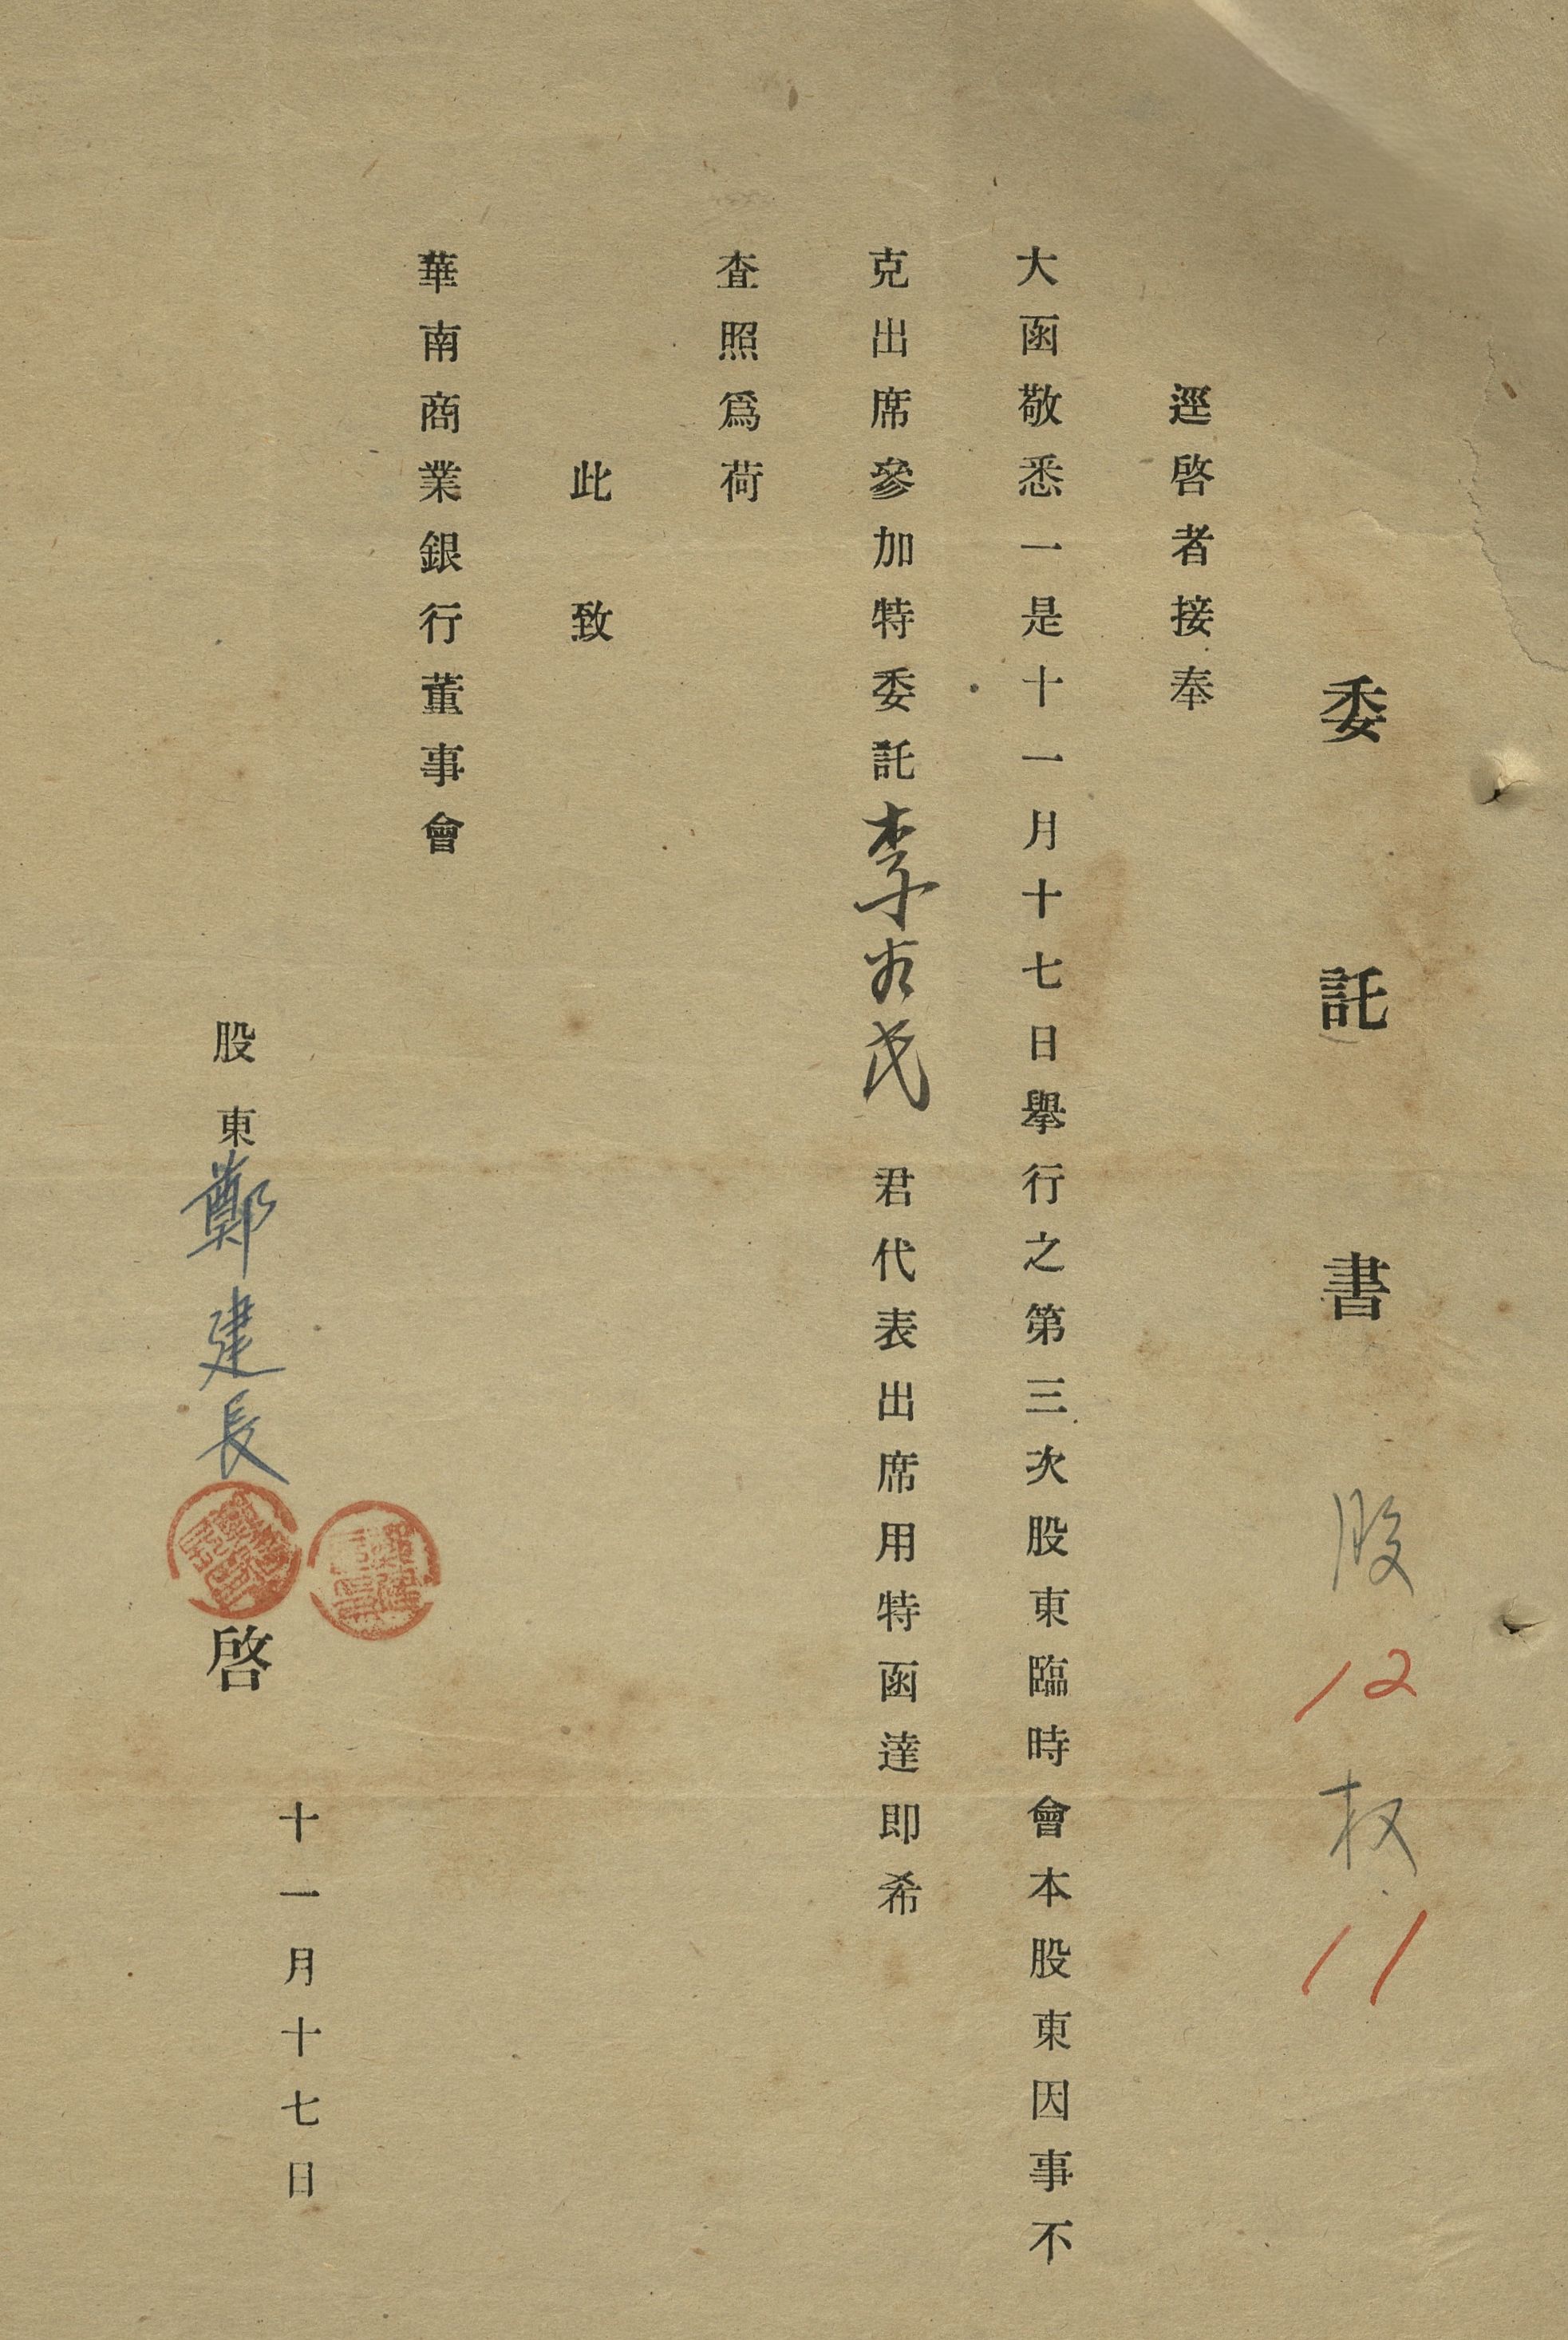 委託書 股 12 权 11
逕啓者接奉
大函敬悉一是十一月十七日舉行之第三次股東臨時會本股東因事不
克出席參加特委託李 民 君代表出席用特函達即希
查照爲荷
此致
華南商業銀行董事會
十一月十七日
股東鄭建長 啓